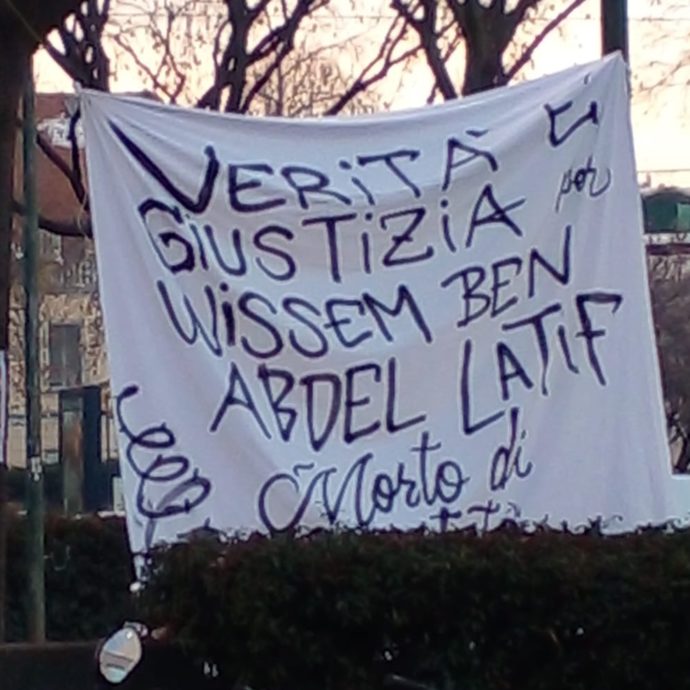 VERITÀ
GIUSTIZIA per
WISSEM BEN
ABDEL LATIF
Morto di